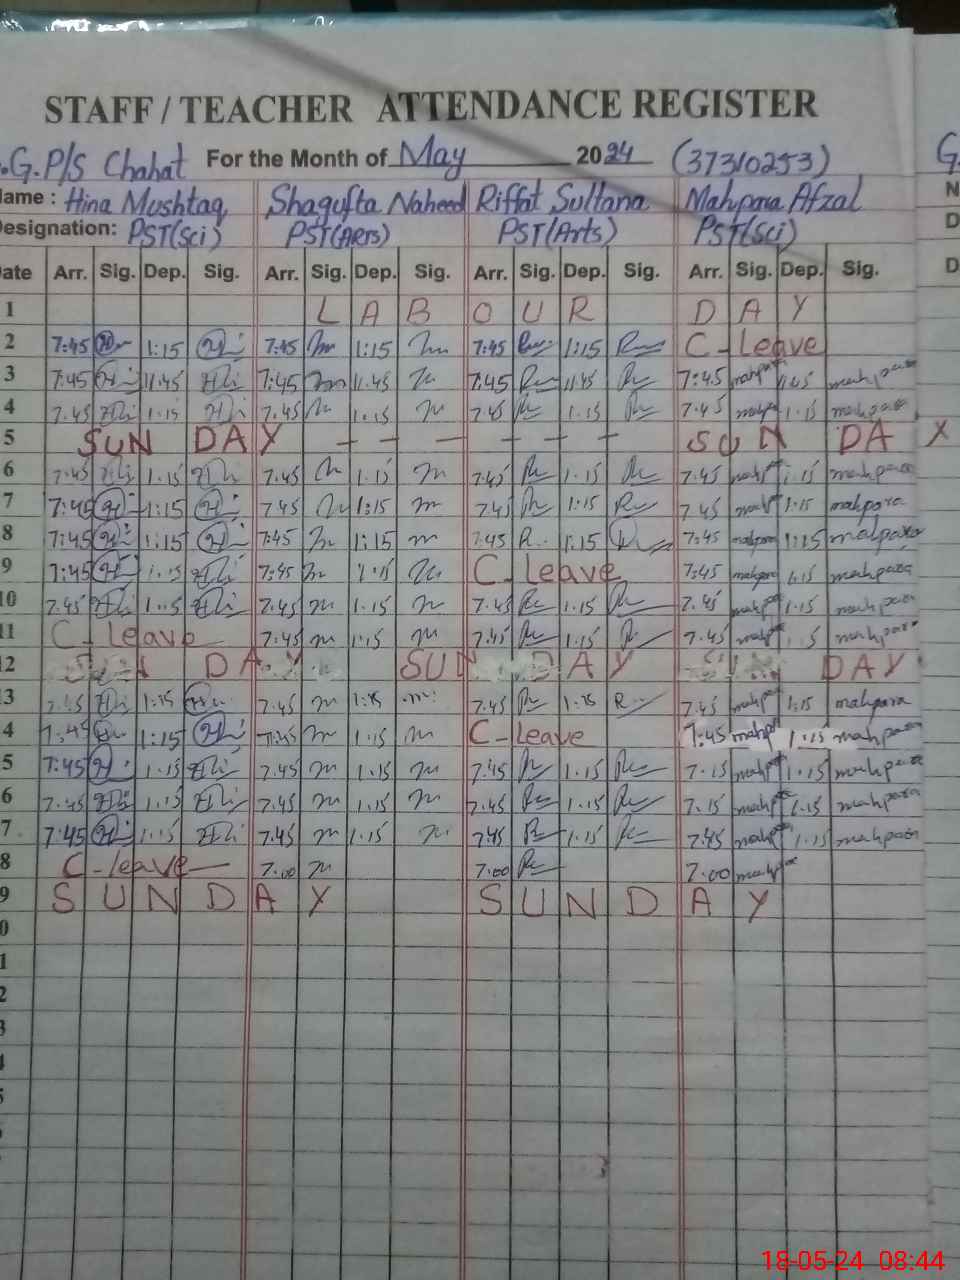 STAFF / TEACHER ATTENDANCE REGISTER
.G.P/S Chahat For the Month of May 2024 (37310253) G.
ame : Hina Mushtaq Shagufta Naheed Riffat Sultana Mahpara Afzal N
esignation: PST(Sci) PST(Arts) PST(Arts) PST(Sci) D
ate Arr. Sig. Dep. Sig. Arr. Sig. Dep. Sig. Arr. Sig. Dep. Sig. Arr. Sig. Dep. Sig. D
1 L A B O U R D A Y
2 7:45 1:15 7:45 1:15 7:45 1:15 C-Leave
3 7:45 11:45 7:45 11.45 7:45 11.45 7:45 mahpara 11.45 mahpara
4 7.45 1.15 7.45 1.15 7.45 1.15 7.45 mahpa 1.15 mahpara
5 SUN DAY - - - - - - SUN DA X
6 7.45 1.15 7.45 1.15 7.45 1.15 7.45 mahpa 1.15 mahpara
7 7:45 1:15 7.45 1:15 7.45 1:15 7.45 1:15 mahpara
8 7:45 1:15 7:45 1:15 7:45 1:15 7:45 mahpara 1:15 mahpara
9 7:45 1.15 7:45 1:15 C-leave 7:45 mahpara 1.15 mahpara
10 7.45 1.15 7.45 1.15 7.45 1.15 7.45 mahpa 1.15 mahpara
11 C-Leave 7.45 1.15 7.45 1.15 7.45 mahpa 1.15 mahpara
12 SUN DAY SUN DAY SUN DAY
13 7.45 1:15 7.45 1:15 7.45 1:15 7.45 mahpa 1:15 mahpara
4 7:45 1:15 7:45 1.15 C-leave 7:45 mahpa 1.15 mahpara
5 7:45 1.15 7.45 1.15 7.45 1.15 7.15 mahpa 1.15 mahpara
6 7.45 1.15 7.45 1.15 7.45 1.15 7.15 mahpa 1.15 mahpara
7 7:45 1.15 7.45 1.15 7.45 1.15 7.45 mahpa 1.15 mahpara
8 C-leave 7.00 7:00 7:00 mahpar
9 S U N D A Y S U N D A Y
0
1
2
3
4
5
18-05-24 08:44